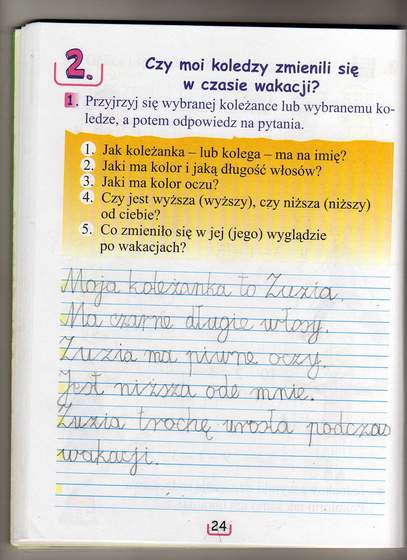 2.
Czy moi koledzy zmienili się
w czasie wakacji?
1. Przyjrzyj się wybranej koleżance lub wybranemu ko-
ledze, a potem odpowiedz na pytania.
1. Jak koleżanka – lub kolega – ma na imię?
2. Jaki ma kolor i jaką długość włosów?
3. Jaki ma kolor oczu?
4. Czy jest wyższa (wyższy), czy niższa (niższy)
od ciebie?
5. Co zmieniło się w jej (jego) wyglądzie
po wakacjach?
Moja koleżanka to Zuzia.
Ma czarne długie włosy.
Zuzia ma piwne oczy.
Jest niższa ode mnie.
Zuzia trochę urosła podczas
wakacji.
24